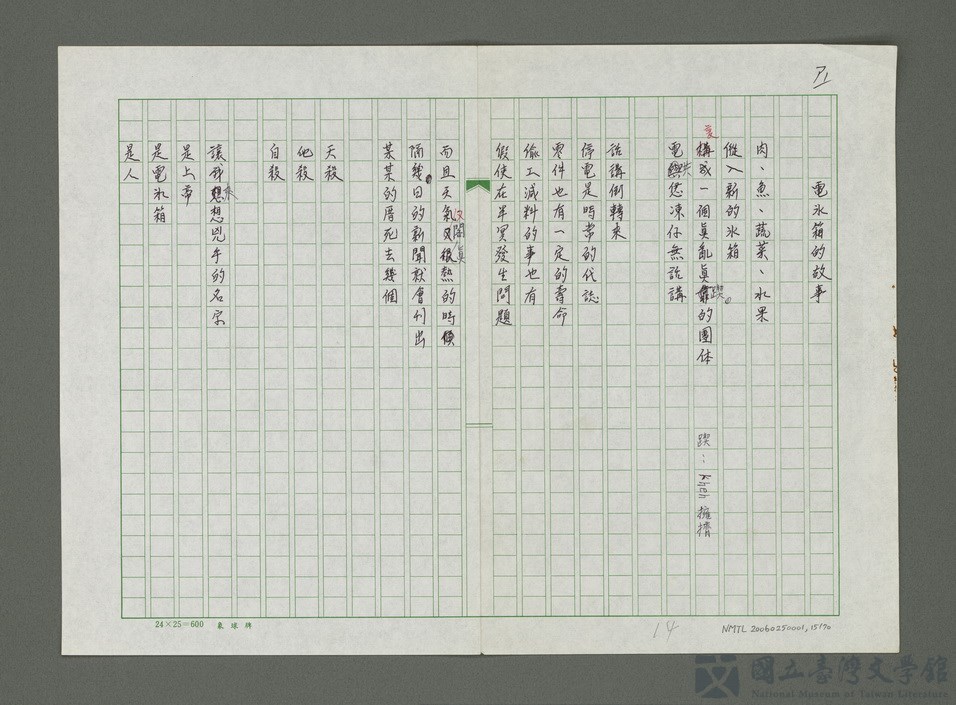 P1
電氷箱的故事
肉、魚、蔬菜、水果
傱入新的氷箱
變構成一個真亂真踜的團体
踜：kheh 擁擠
電共恁凍仔無話講
話講倒轉來
停電是時常的代誌
零件也有一定的壽命
偷工減料的事也有
假使在半冥發生問題
而且天氣又閣真熱的時候
隔幾日的新聞就會刊出
某某的厝死去幾個
天殺
他殺
自殺
讓我來想兇手的名字
是上帝
是電氷箱
是人
24×25=600 氣球牌
14
NMTL 20060250001,15/70
國立臺灣文學館
National Museum of Taiwan Literature